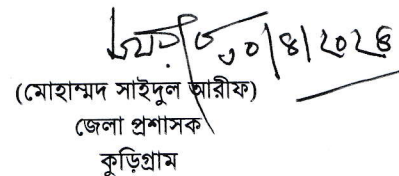 ৩০/৪/২০২৪
(মোহাম্মদ সাইদুল আরীফ)
জেলা প্রশাসক
কুড়িগ্রাম